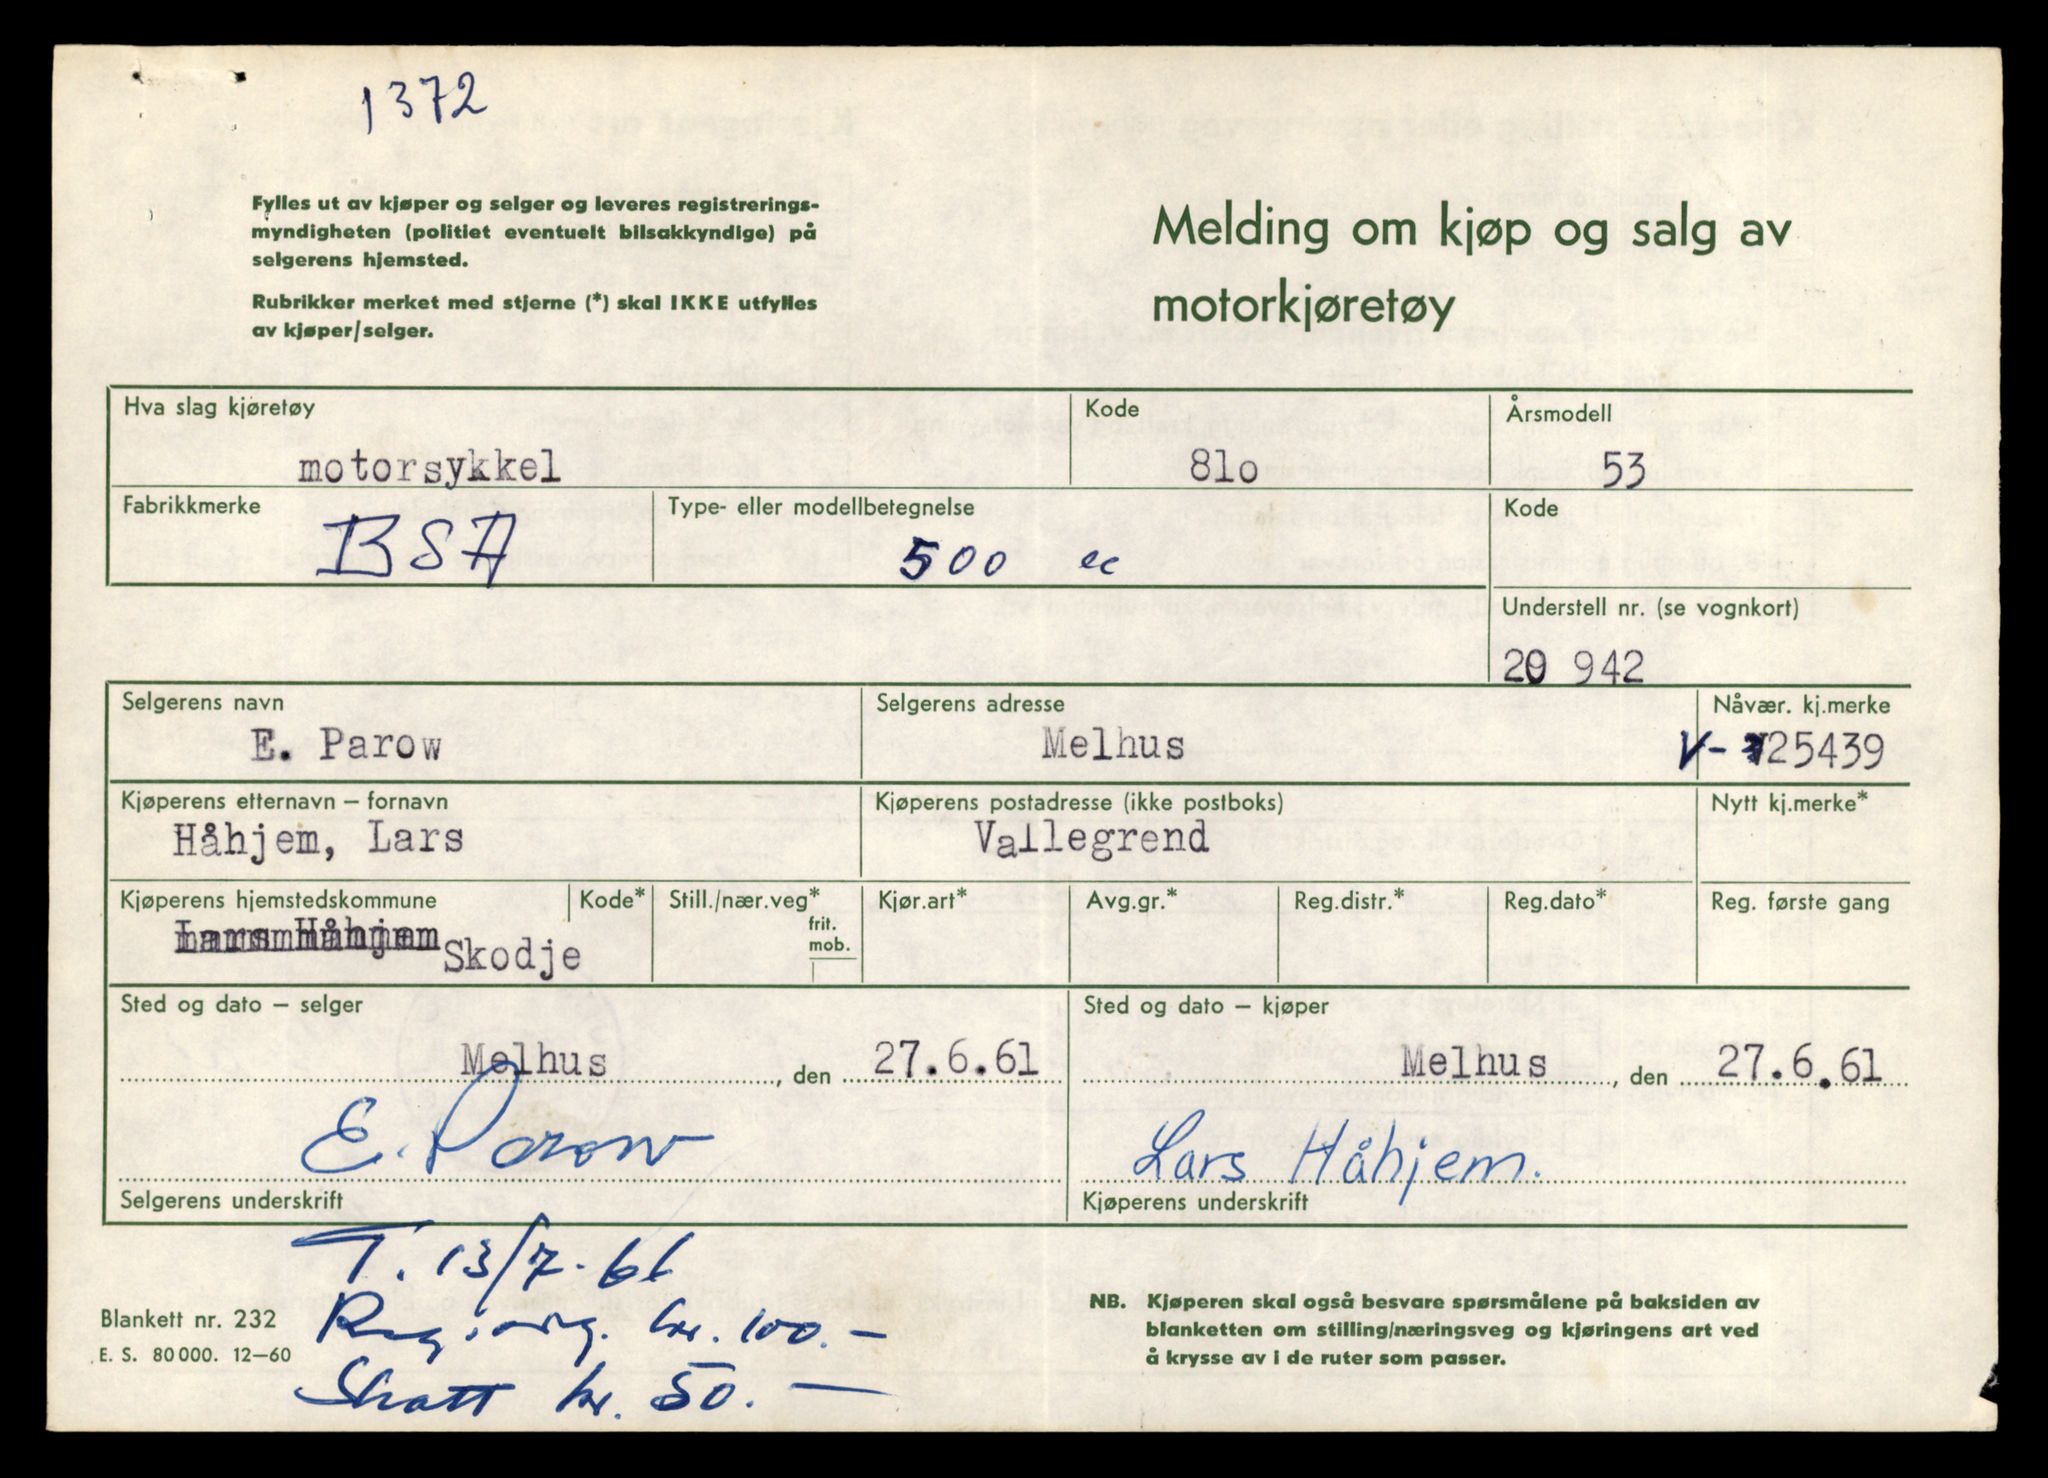 1372
Fylles ut av kjøper og selger og leveres registrerings-
myndigheten (politiet eventuelt bilsakkyndige) på
selgerens hjemsted.
Rubrikker merket med stjerne (*) skal IKKE utfylles
av kjøper/selger.
Melding om kjøp og salg av
motorkjøretøy
Hva slag kjøretøy
motorsykkel
Kode
81o
Årsmodell
53
Fabrikkmerke
BSA
Type- eller modellbetegnelse
500 cc
Kode
Understell nr. (se vognkort)
20 942
Selgerens navn
E. Parow
Selgerens adresse
Melhus
Nåvær. kj.merke
V- 25439
Kjøperens etternavn – fornavn
Håhjem, Lars
Kjøperens postadresse (ikke postboks)
Vallegrend
Nytt kj.merke*
Kjøperens hjemstedskommune
Lars Håhjem Skodje
Kode*
Still./nær.veg*
frit.
mob.
Kjør.art*
Avg.gr.*
Reg.distr.*
Reg.dato*
Reg. første gang
Sted og dato – selger
Melhus, den 27.6.61
E. Parow
Selgerens underskrift
Sted og dato – kjøper
Melhus, den 27.6.61
Lars Håhjem.
Kjøperens underskrift
T. 13/7-61
kr. 100.-
Skatt kr. 50.-
Blankett nr. 232
E. S. 80000. 12–60
NB. Kjøperen skal også besvare spørsmålene på baksiden av
blanketten om stilling/næringsveg og kjøringens art ved
å krysse av i de ruter som passer.